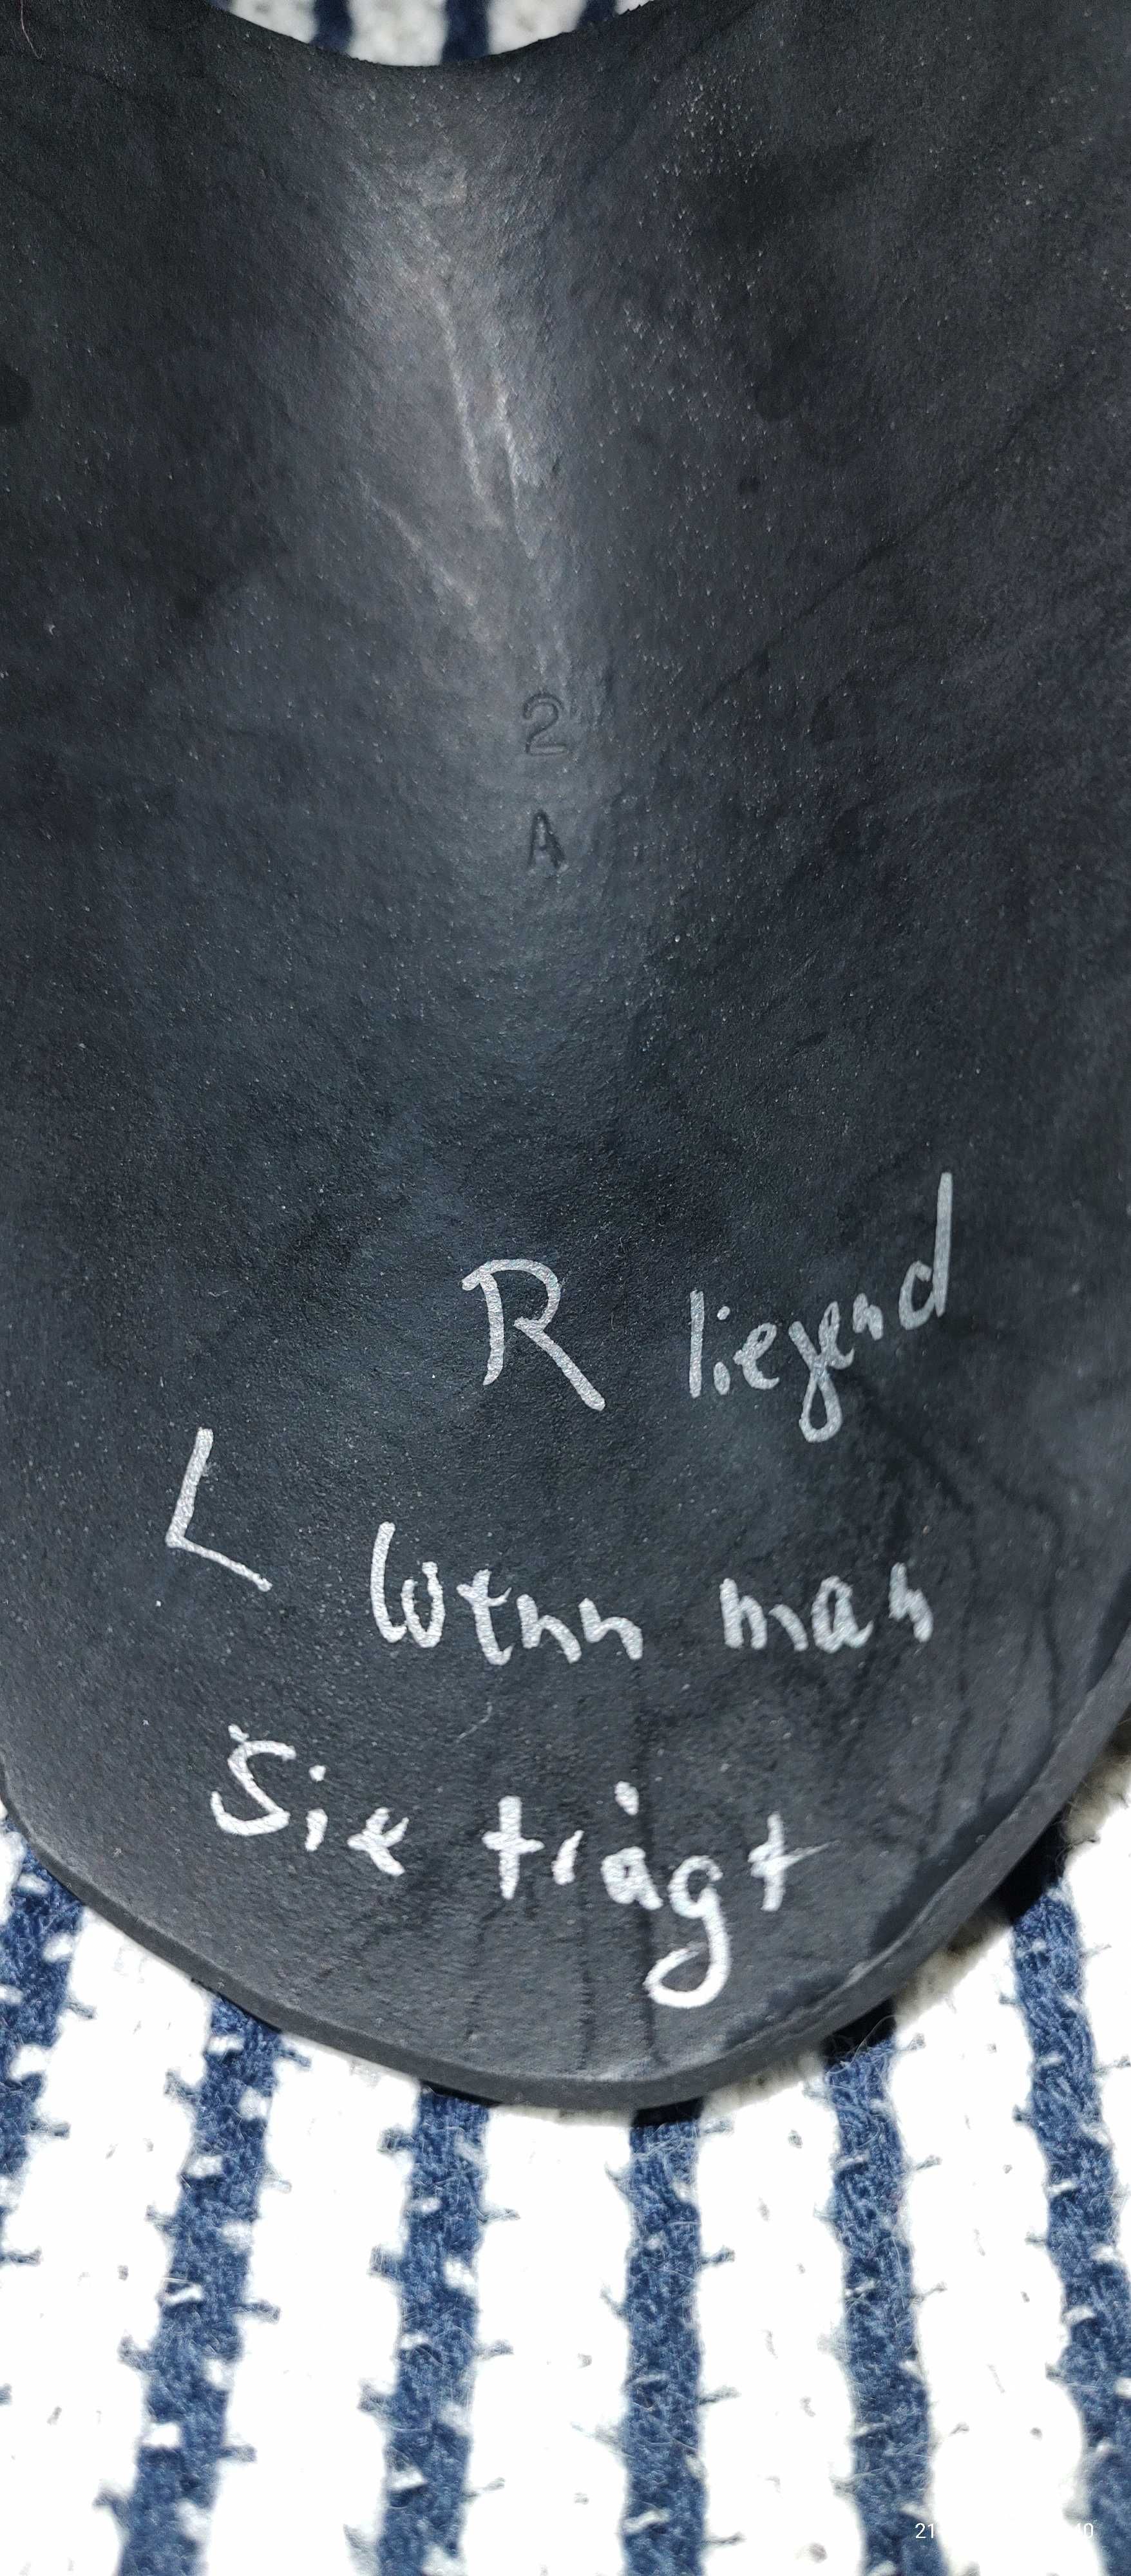 2
A
R liegend
L Wenn man
Sie trägt